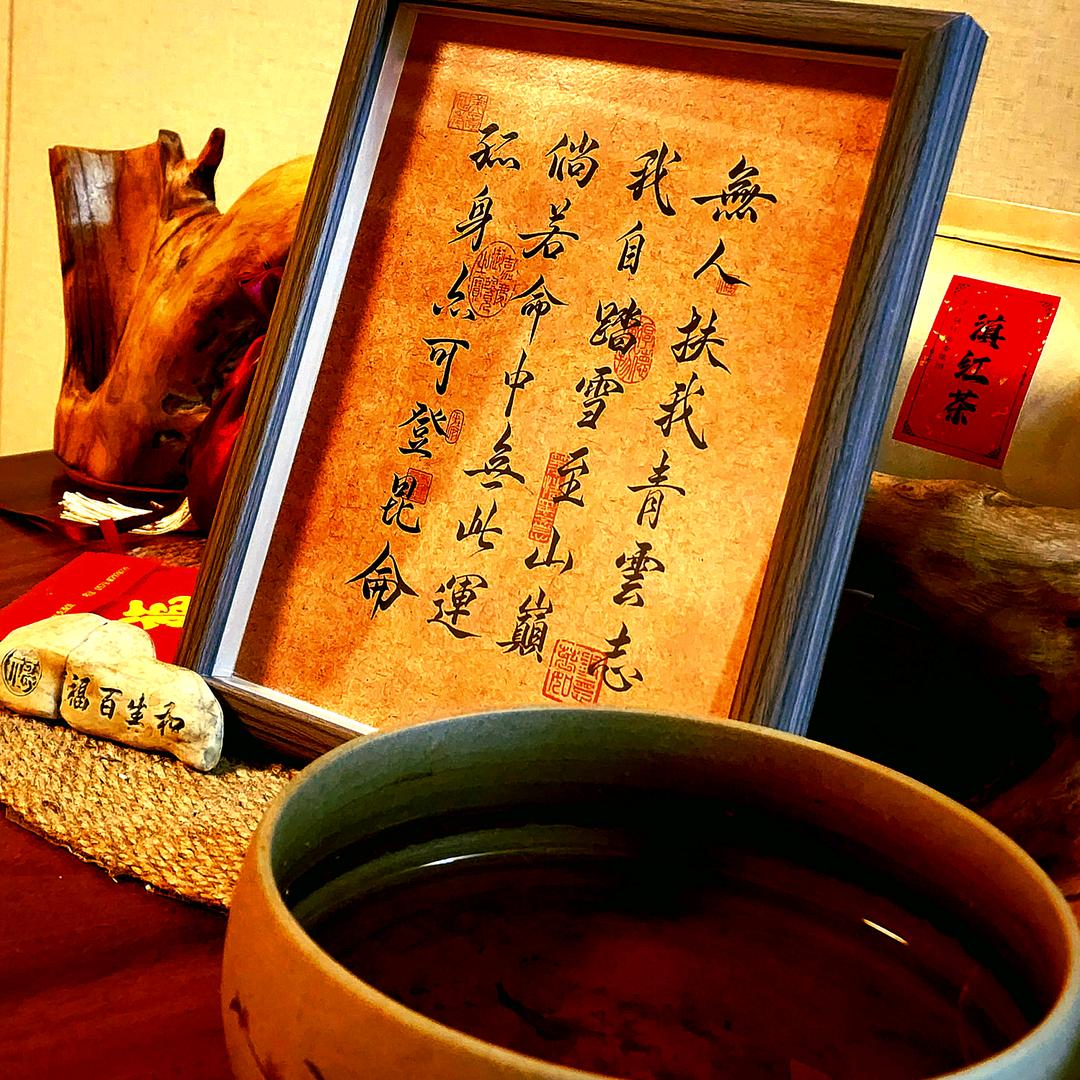 無人扶我青雲志
我自踏雪至山巔
倘若命中無此運
孤身亦可登昆侖
滇红茶
福百生和